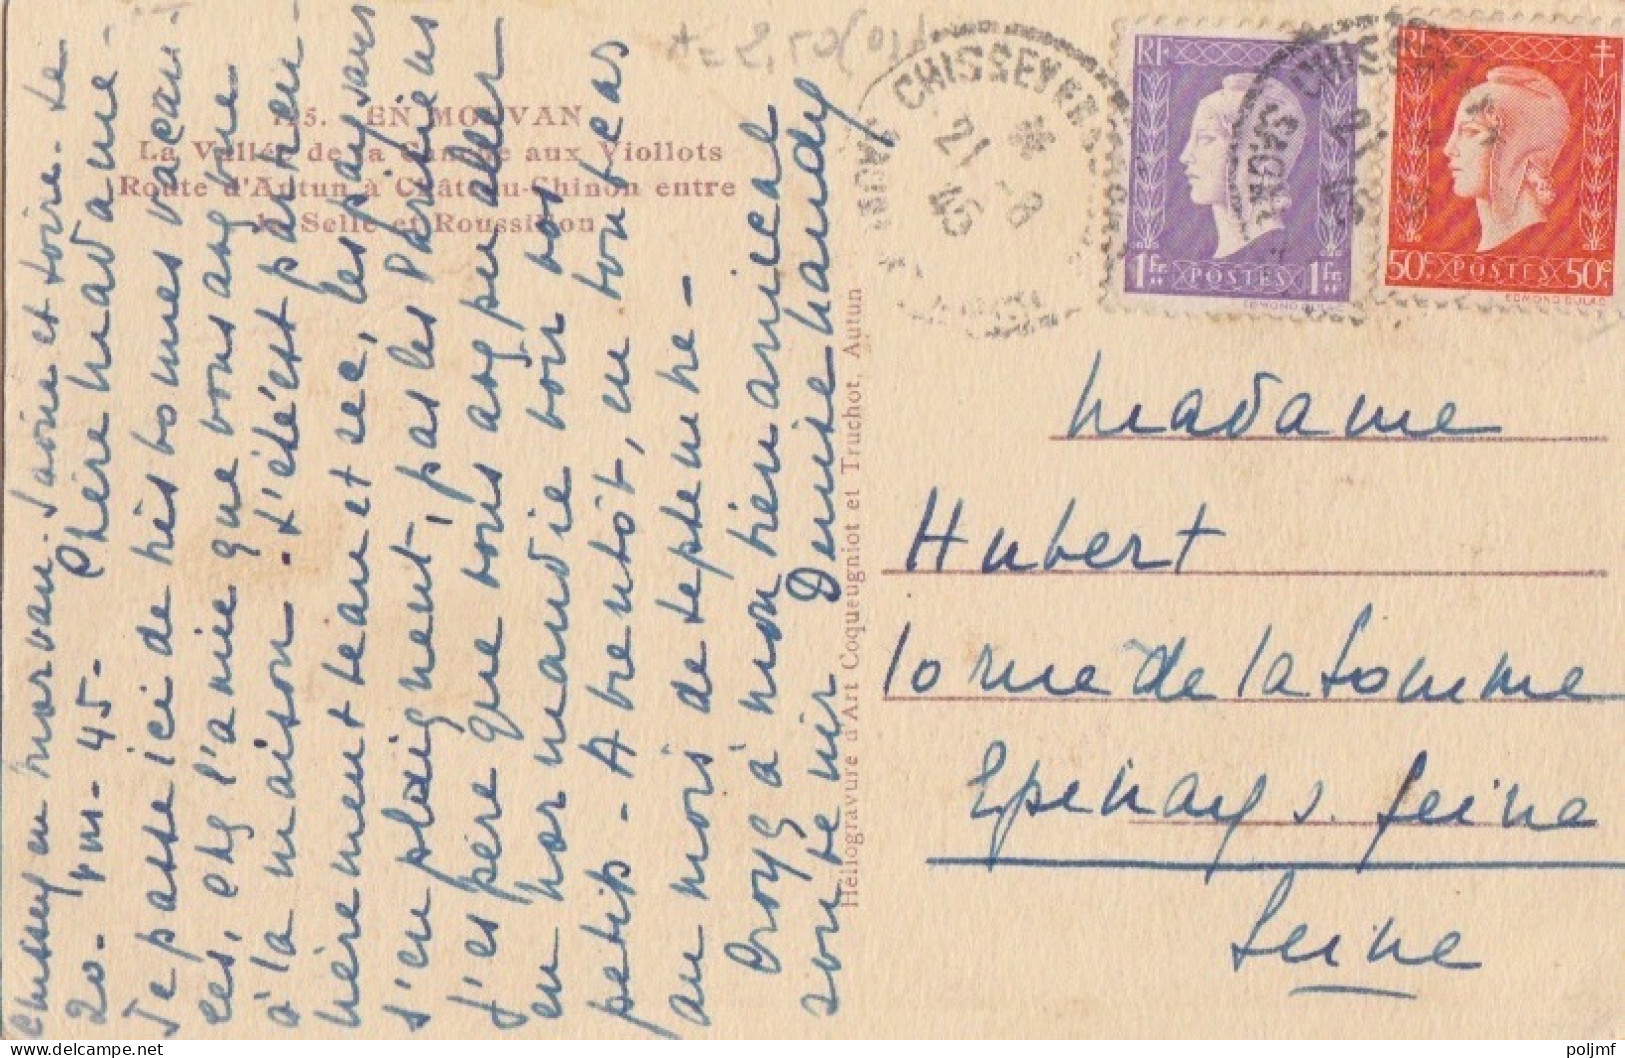 Chissey en Morvan. Saône et Loire. Le
20 - VIII - 45 - Chère Madame -
Je passe ici de très bonnes vacan-
ces, chez l'amie que vous avez vue
à la maison. L'été est particu-
lièrement beau et sec, les paysans
s'en plaignent, pas les Parisiens
J'espère que vous avez pu aller
en Normandie voir vos
petits - A bientôt, en tout cas
au mois de septembre -
Croyez à mon bien amical
souvenir Denise
A = 2,50
725. EN MORVAN
La Vallée de la Canche aux Viollots
Route d'Autun à Château-Chinon entre
la Selle et Roussillon
Héliogravure d'Art Coqueugniot et Truchot, Autun
CHISSEY EN MORVAN
21 - 8
45
SAONE
RF
1Fr. POSTES 1Fr.
EDMOND DULAC
RF
50c POSTES 50c
EDMOND DULAC
Madame
Hubert
10 rue de la Somme
Epinay s. Seine
Seine
Delcampe.net
poljmf